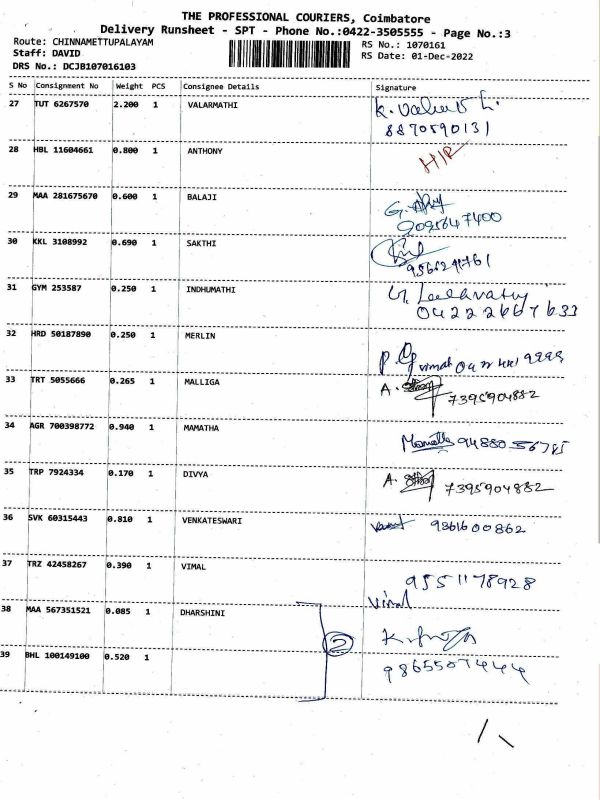 THE PROFESSIONAL COURIERS, Coimbatore
Delivery Runsheet - SPT - Phone No.:0422-3505555 - Page No.:3
Route: CHINNAMETTUPALAYAM RS No.: 1070161
Staff: DAVID RS Date: 01-Dec-2022
DRS No.: DCJB107016103
S No Consignment No Weight PCS Consignee Details Signature
27 TUT 6267570 2.200 1 VALARMATHI
8870590131
28 HBL 11604661 0.800 1 ANTHONY H/R
29 MAA 281675670 0.600 1 BALAJI
9095647400
30 KKL 3108992 0.690 1 SAKTHI
31 GYM 253587 0.250 1 INDHUMATHI
04222667633
32 HRD 50187890 0.250 1 MERLIN
vimal
33 TRT 5055666 0.265 1 MALLIGA A.
7395904882
34 AGR 700398772 0.940 1 MAMATHA
Mamatha 94880 56785
35 TRP 7924334 0.170 1 DIVYA A. 7395904882
36 SVK 60315443 0.810 1 VENKATESWARI 9361600862
37 TRZ 42458267 0.390 1 VIMAL
9551178928
Vimal
38 MAA 567351521 0.085 1 DHARSHINI
2
39 BHL 100149100 0.520 1
9865507444